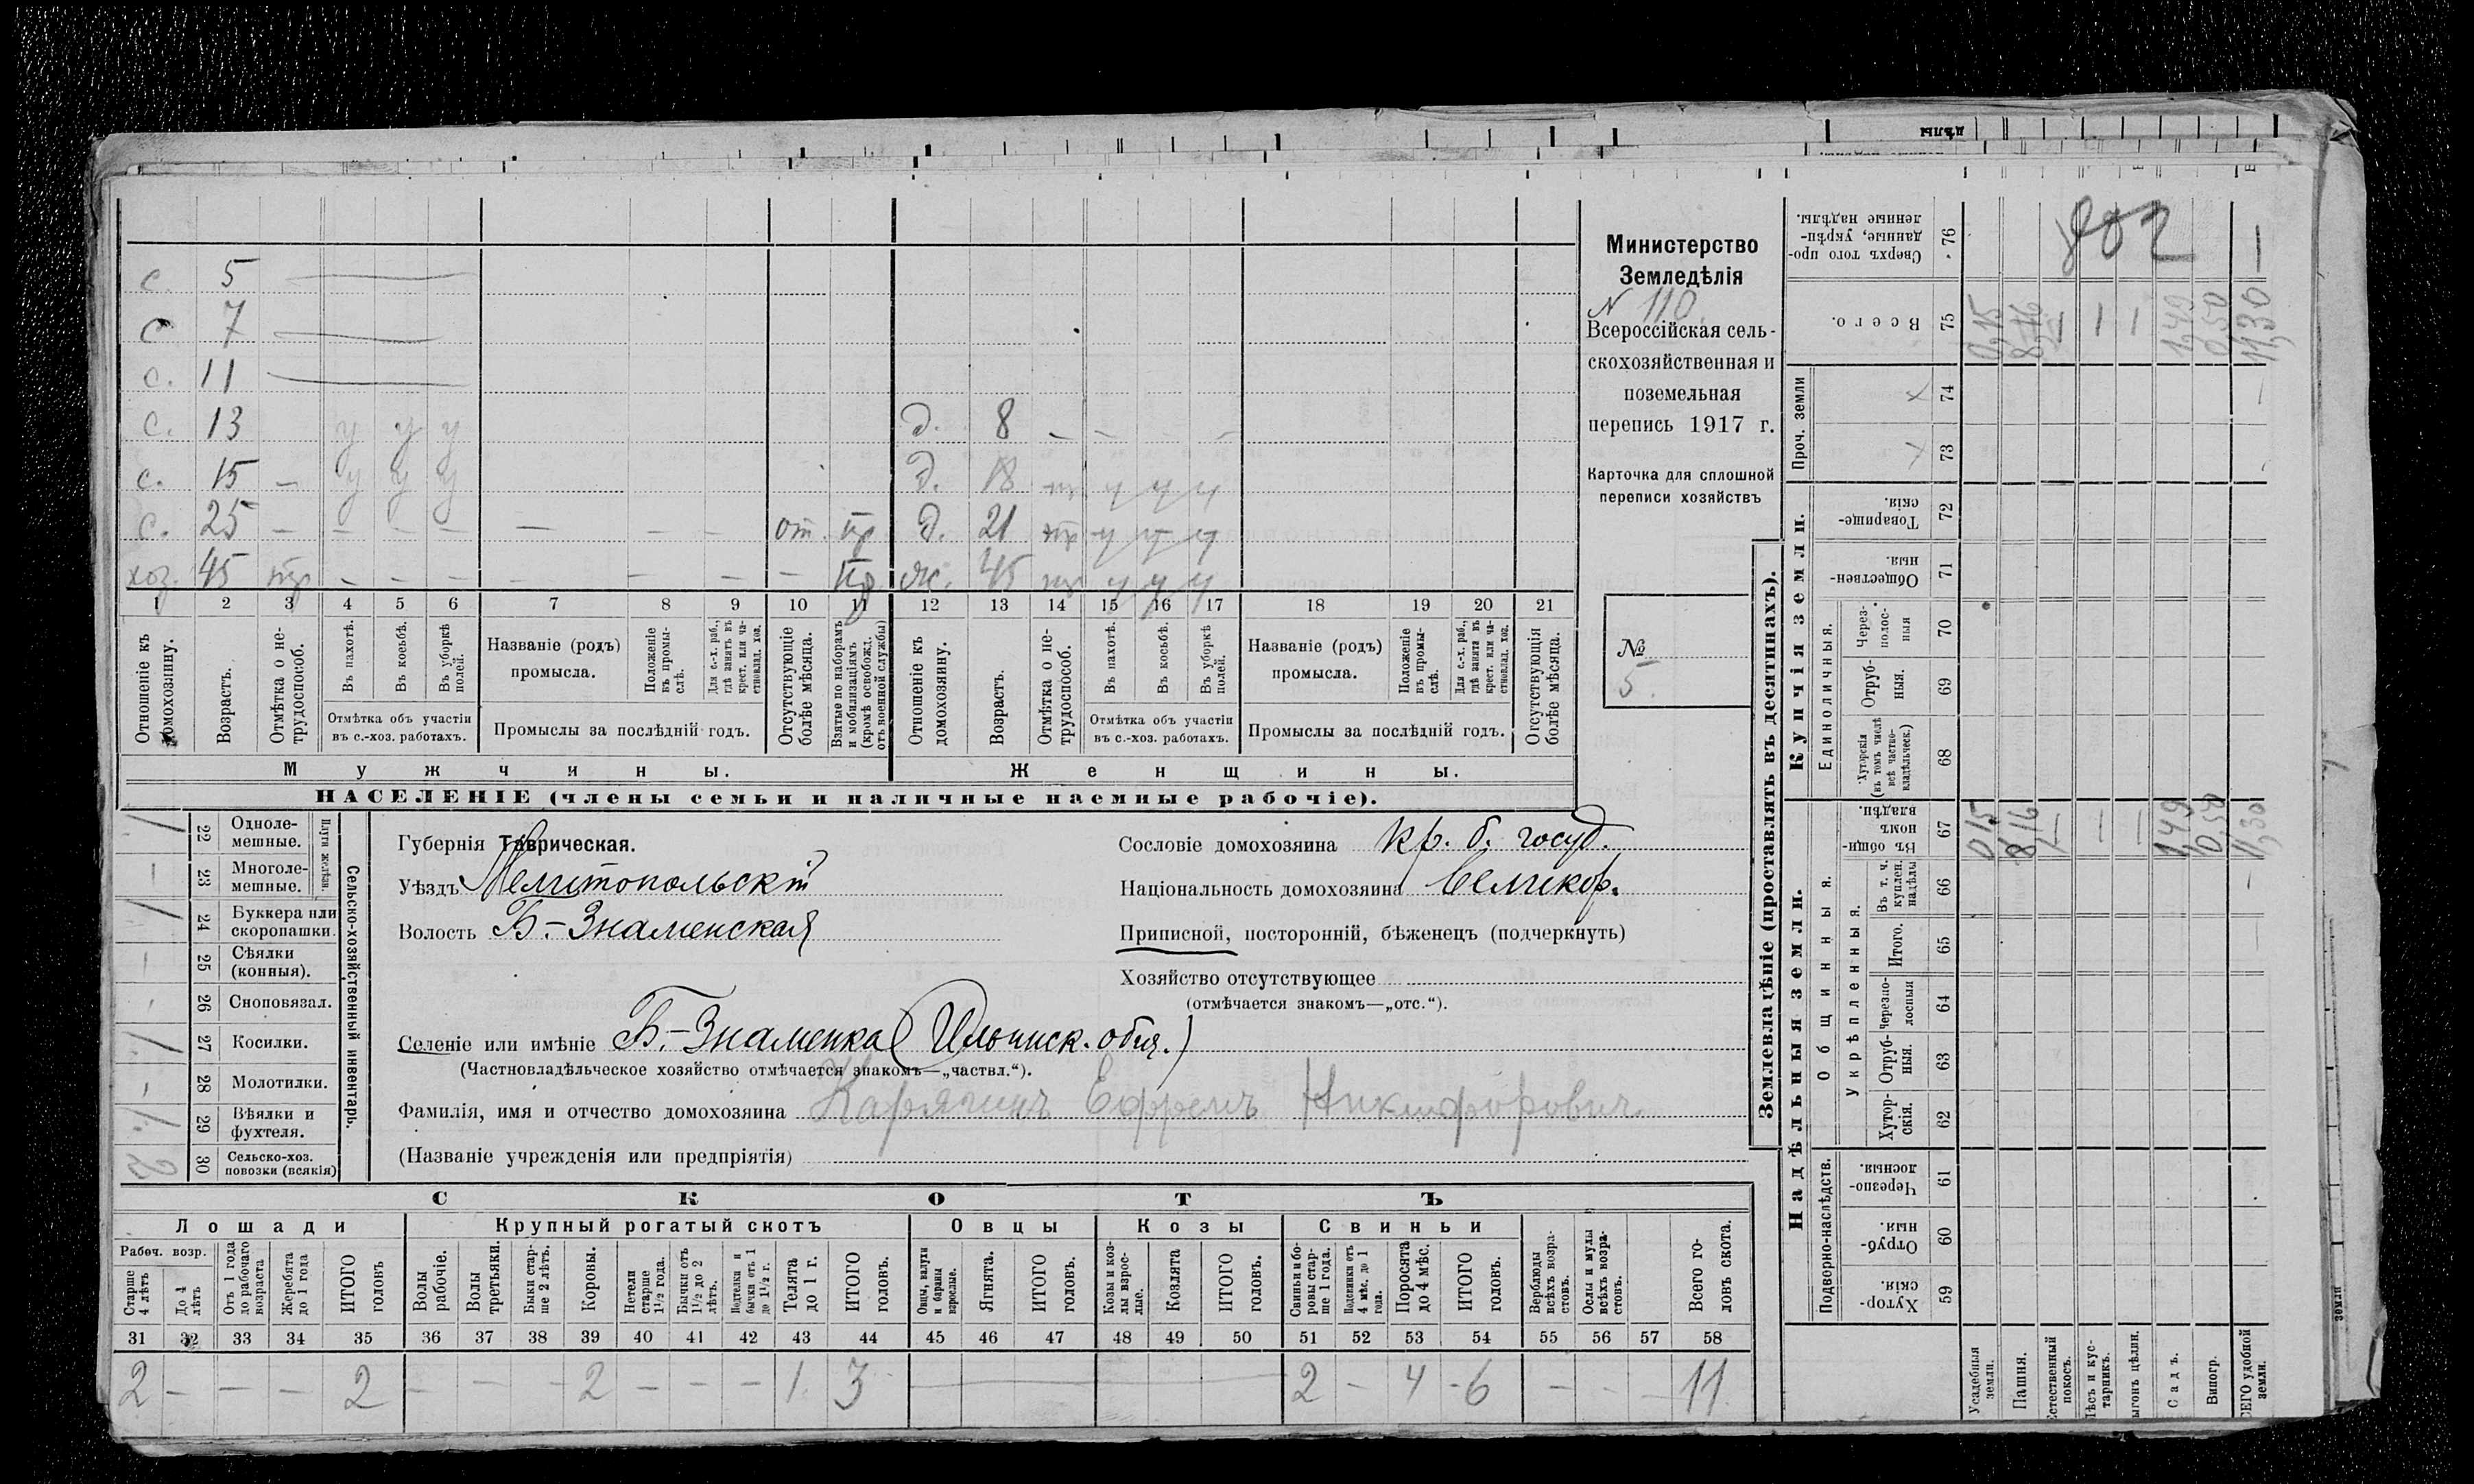 дѣлы
с. 5
с 7
с. 11
с. 13 у у у д. 8 – – –
с. 15 – у у у д. 18 нр у у у
с. 25 – – – – – – – от. нр д. 21 нр у у у
хоз. 45 нр – – – – – – – нр ж. 45 нр у у у
1 2 3 4 5 6 7 8 9 10 11 12 13 14 15 16 17 18 19 20 21
Отношеніе къ домохозяину.
Возрастъ.
Отмѣтка о не-трудоспособ.
Въ пахотѣ.
Въ косьбѣ.
Въ уборкѣ полей.
Отмѣтка объ участіи
въ с.-хоз. работахъ.
Названіе (родъ)
промысла.
Положеніе въ промы-слѣ.
Для с.-х. раб., гдѣ занятъ въ крест. или ча-стновлад. хоз.
Промыслы за послѣдній годъ.
Отсутствующіе болѣе мѣсяца.
Взятые по наборамъ и мобилизаціямъ (кромѣ освобожд. отъ военной службы)
Отношеніе къ домохозяину.
Возрастъ.
Отмѣтка о не-трудоспособ.
Въ пахотѣ.
Въ косьбѣ.
Въ уборкѣ полей.
Отмѣтка объ участіи
въ с.-хоз. работахъ.
Названіе (родъ)
промысла.
Положеніе въ промы-слѣ.
Для с.-х. раб., гдѣ занята въ крест. или ча-стновлад. хоз.
Промыслы за послѣдній годъ.
Отсутствующія болѣе мѣсяца.
Мужчины.
Женщины.
НАСЕЛЕНІЕ (члены семьи и наличные наемные рабочіе).
Министерство
Земледѣлія
N 110.
Всероссійская сель-
скохозяйственная и
поземельная
перепись 1917 г.
Карточка для сплошной
переписи хозяйствъ
№
5.
Сельско-хозяйственный инвентарь.
Плуги желѣзн.
1 22 Одноле-мешные.
– 23 Многоле-мешные.
1 24 Буккера или скоропашки.
– 25 Сѣялки (конныя).
– 26 Сноповязал.
1 27 Косилки.
– 28 Молотилки.
1 29 Вѣялки и фухтеля.
2 30 Сельско-хоз. повозки (всякія)
Губернія Таврическая.
Уѣздъ Мелитопольскій
Волость Б.-Знаменская
Сословіе домохозяина кр. б. госуд.
Національность домохозяина Великор.
Приписной, посторонній, бѣженецъ (подчеркнуть)
Хозяйство отсутствующее
(отмѣчается знакомъ—„отс.“).
Селеніе или имѣніе Б.-Знаменка (Ильинск. общ.)
(Частновладѣльческое хозяйство отмѣчается знакомъ—„частвл.“).
Фамилія, имя и отчество домохозяина Карягинъ Ефремъ Никифорович.
(Названіе учрежденія или предпріятія)
СКОТЪ
Лошади
Крупный рогатый скотъ
Овцы
Козы
Свиньи
Рабоч. возр.
Старше 4 лѣтъ
До 4 лѣтъ
Отъ 1 года до рабочаго возраста
Жеребята до 1 года
ИТОГО головъ
Волы рабочіе.
Волы третьяки.
Быки стар-ше 2 лѣтъ.
Коровы.
Нетели старше 1½ года.
Бычки отъ 1½ до 2 лѣтъ.
Подтелки и бычки отъ 1 до 1½ г.
Телята до 1 г.
ИТОГО головъ.
Овцы, валухи и бараны взрослые.
Ягнята.
ИТОГО головъ.
Козы и коз-лы взрос-лые.
Козлята
ИТОГО головъ.
Свиньи и бо-ровы стар-ше 1 года.
Подсвинки отъ 4 мѣс. до 1 года.
Поросята до 4 мѣс.
ИТОГО головъ.
Верблюды всѣхъ возра-стовъ.
Ослы и мулы всѣхъ возра-стовъ.
Всего го-ловъ скота.
31 32 33 34 35 36 37 38 39 40 41 42 43 44 45 46 47 48 49 50 51 52 53 54 55 56 57 58
2 – – – 2 – – – 2 – – – 1. 3 2 – 4 -6 – – – 11
Землевладѣніе (проставлять въ десятинахъ).
Надѣльныя земли.
Купчія земли.
Проч. земли
Подворно-наслѣдств.
Общинныя.
Укрѣпленныя.
Единоличныя.
Хутор-скія. 59
Отруб-ныя. 60
Черезпо-лосныя 61
Хутор-скія. 62
Отруб-ныя. 63
Черезпо-лосныя 64
Итого. 65
Въ т. ч. куплен. надѣлы 66
Въ общи-номъ владѣн. 67
Хуторскія (въ томъ числѣ всѣ частно-владѣльческ.) 68
Отруб-ныя. 69
Через-полос-ныя 70
Обществен-ныя. 71
Товарище-скія. 72
73
74
Всего. 75
Сверхъ того про-данные, укрѣп-ленные надѣлы. 76
Усадебныя земли.
Пашня.
Естественный покосъ.
Лѣсъ и кус-тарникъ.
Выгонъ цѣлин.
Садъ.
Виногр.
ВСЕГО удобной земли.
0,15 8,16 – – – 1,49 0,50 11,30
015 8,16 – – – 1,49 0,50 11,30
802
земли